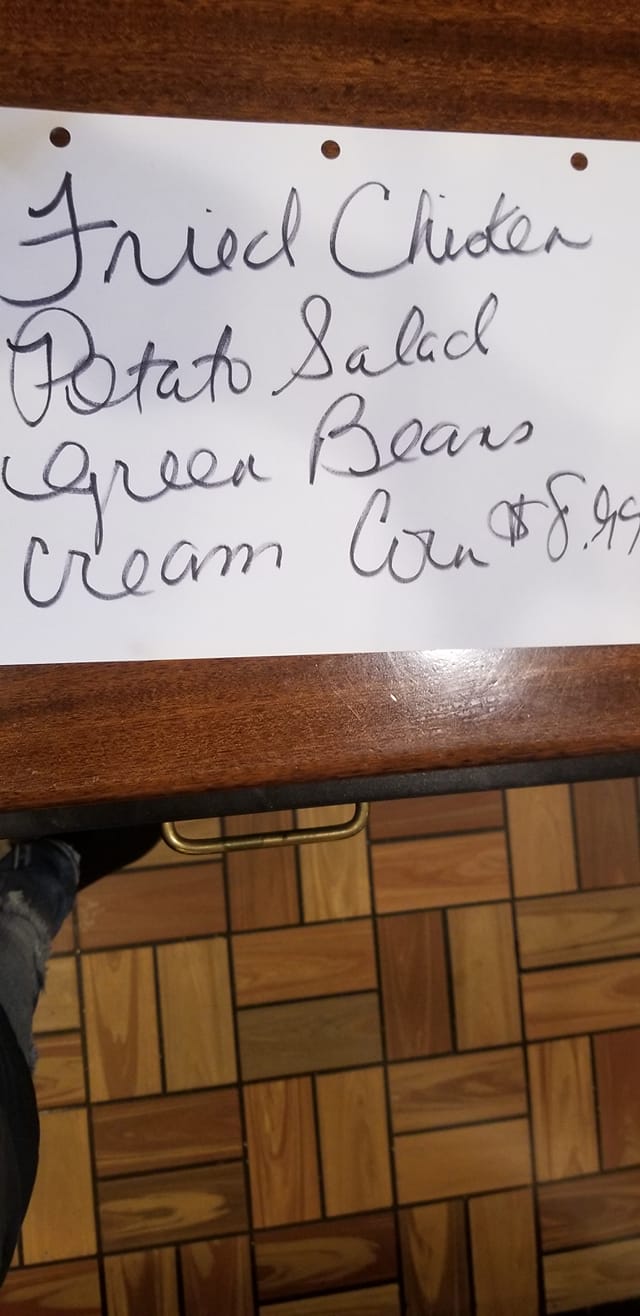 Fried Chicken
Potato Salad
Green Beans
Cream Corn $8.99